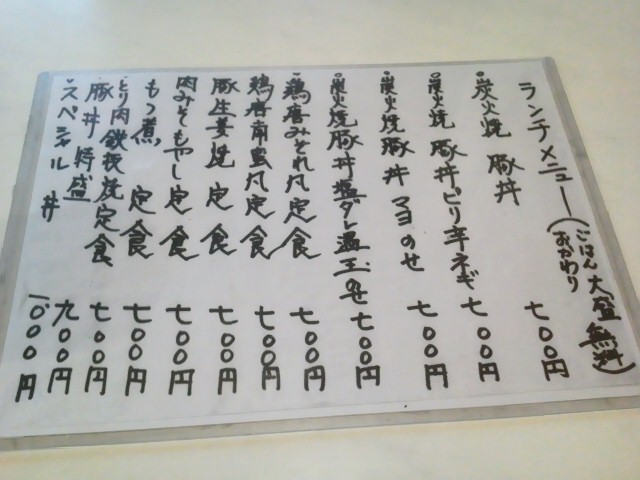 ランチメニュー(ごはん大盛無料)
おかわり
・炭火焼 豚丼 七〇〇円
・炭火焼 豚丼ピリ辛ネギ 七〇〇円
・炭火焼 豚丼 マヨのせ 七〇〇円
・炭火焼豚丼塩ダレ温玉のせ 七〇〇円
・鶏唐みそれ風定食 七〇〇円
鶏唐南蛮風定食 七〇〇円
豚生姜焼 定食 七〇〇円
肉みそもやし定食 七〇〇円
もつ煮 定食 七〇〇円
とり肉鉄板焼定食 七〇〇円
・豚丼 特盛 九〇〇円
・スペシャル丼 一、〇〇〇円